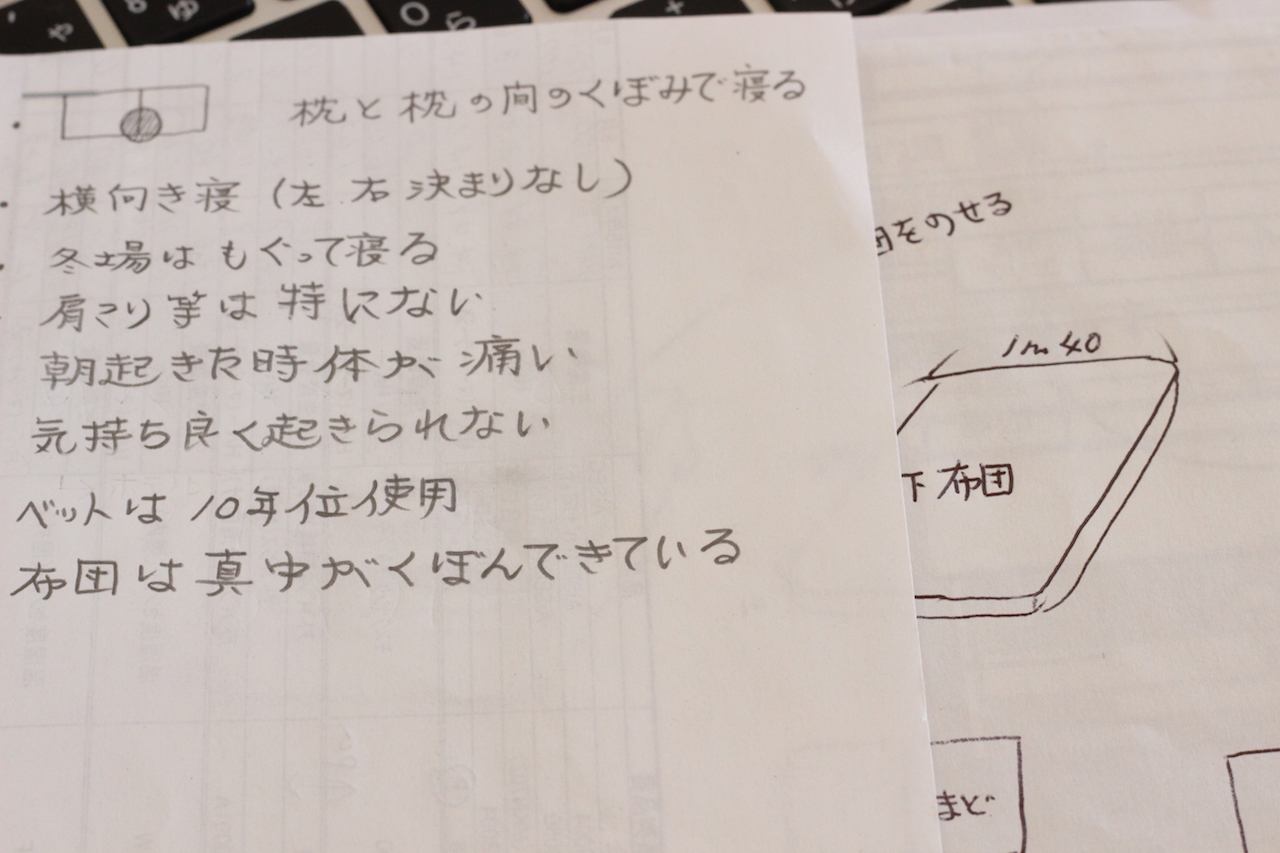 枕と枕の間のくぼみで寝る
横向き寝(左.右決まりなし)
冬場はもぐって寝る
肩こり等は特にない
朝起きた時体が痛い
気持ち良く起きられない
ベットは10年位使用
布団は真中がくぼんできている
団をのせる
1m40
下布団
まど